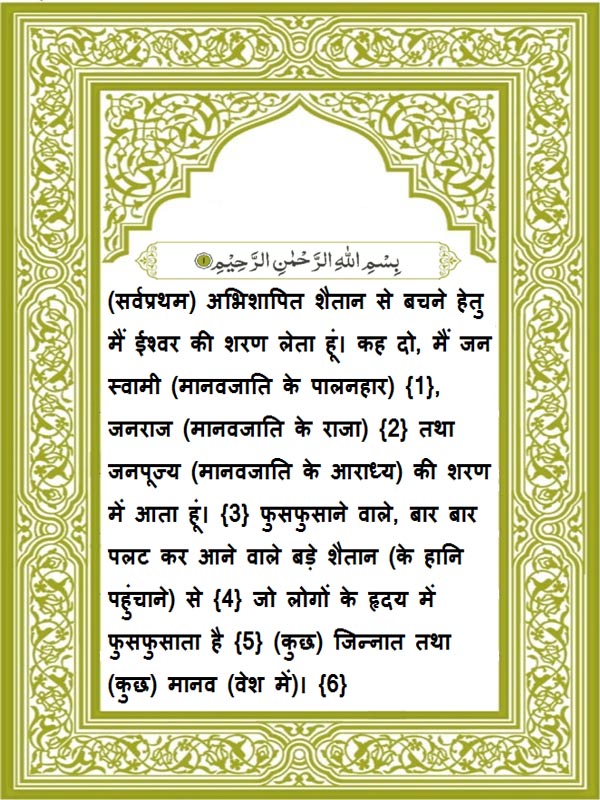 بِسْمِ اللّٰهِ الرَّحْمٰنِ الرَّحِيْمِ ١
(सर्वप्रथम) अभिशापित शैतान से बचने हेतु
मैं ईश्वर की शरण लेता हूं। कह दो, मैं जन
स्वामी (मानवजाति के पालनहार) {1},
जनराज (मानवजाति के राजा) {2} तथा
जनपूज्य (मानवजाति के आराध्य) की शरण
में आता हूं। {3} फुसफुसाने वाले, बार बार
पलट कर आने वाले बड़े शैतान (के हानि
पहुंचाने) से {4} जो लोगों के हृदय में
फुसफुसाता है {5} (कुछ) जिन्नात तथा
(कुछ) मानव (वेश में)। {6}